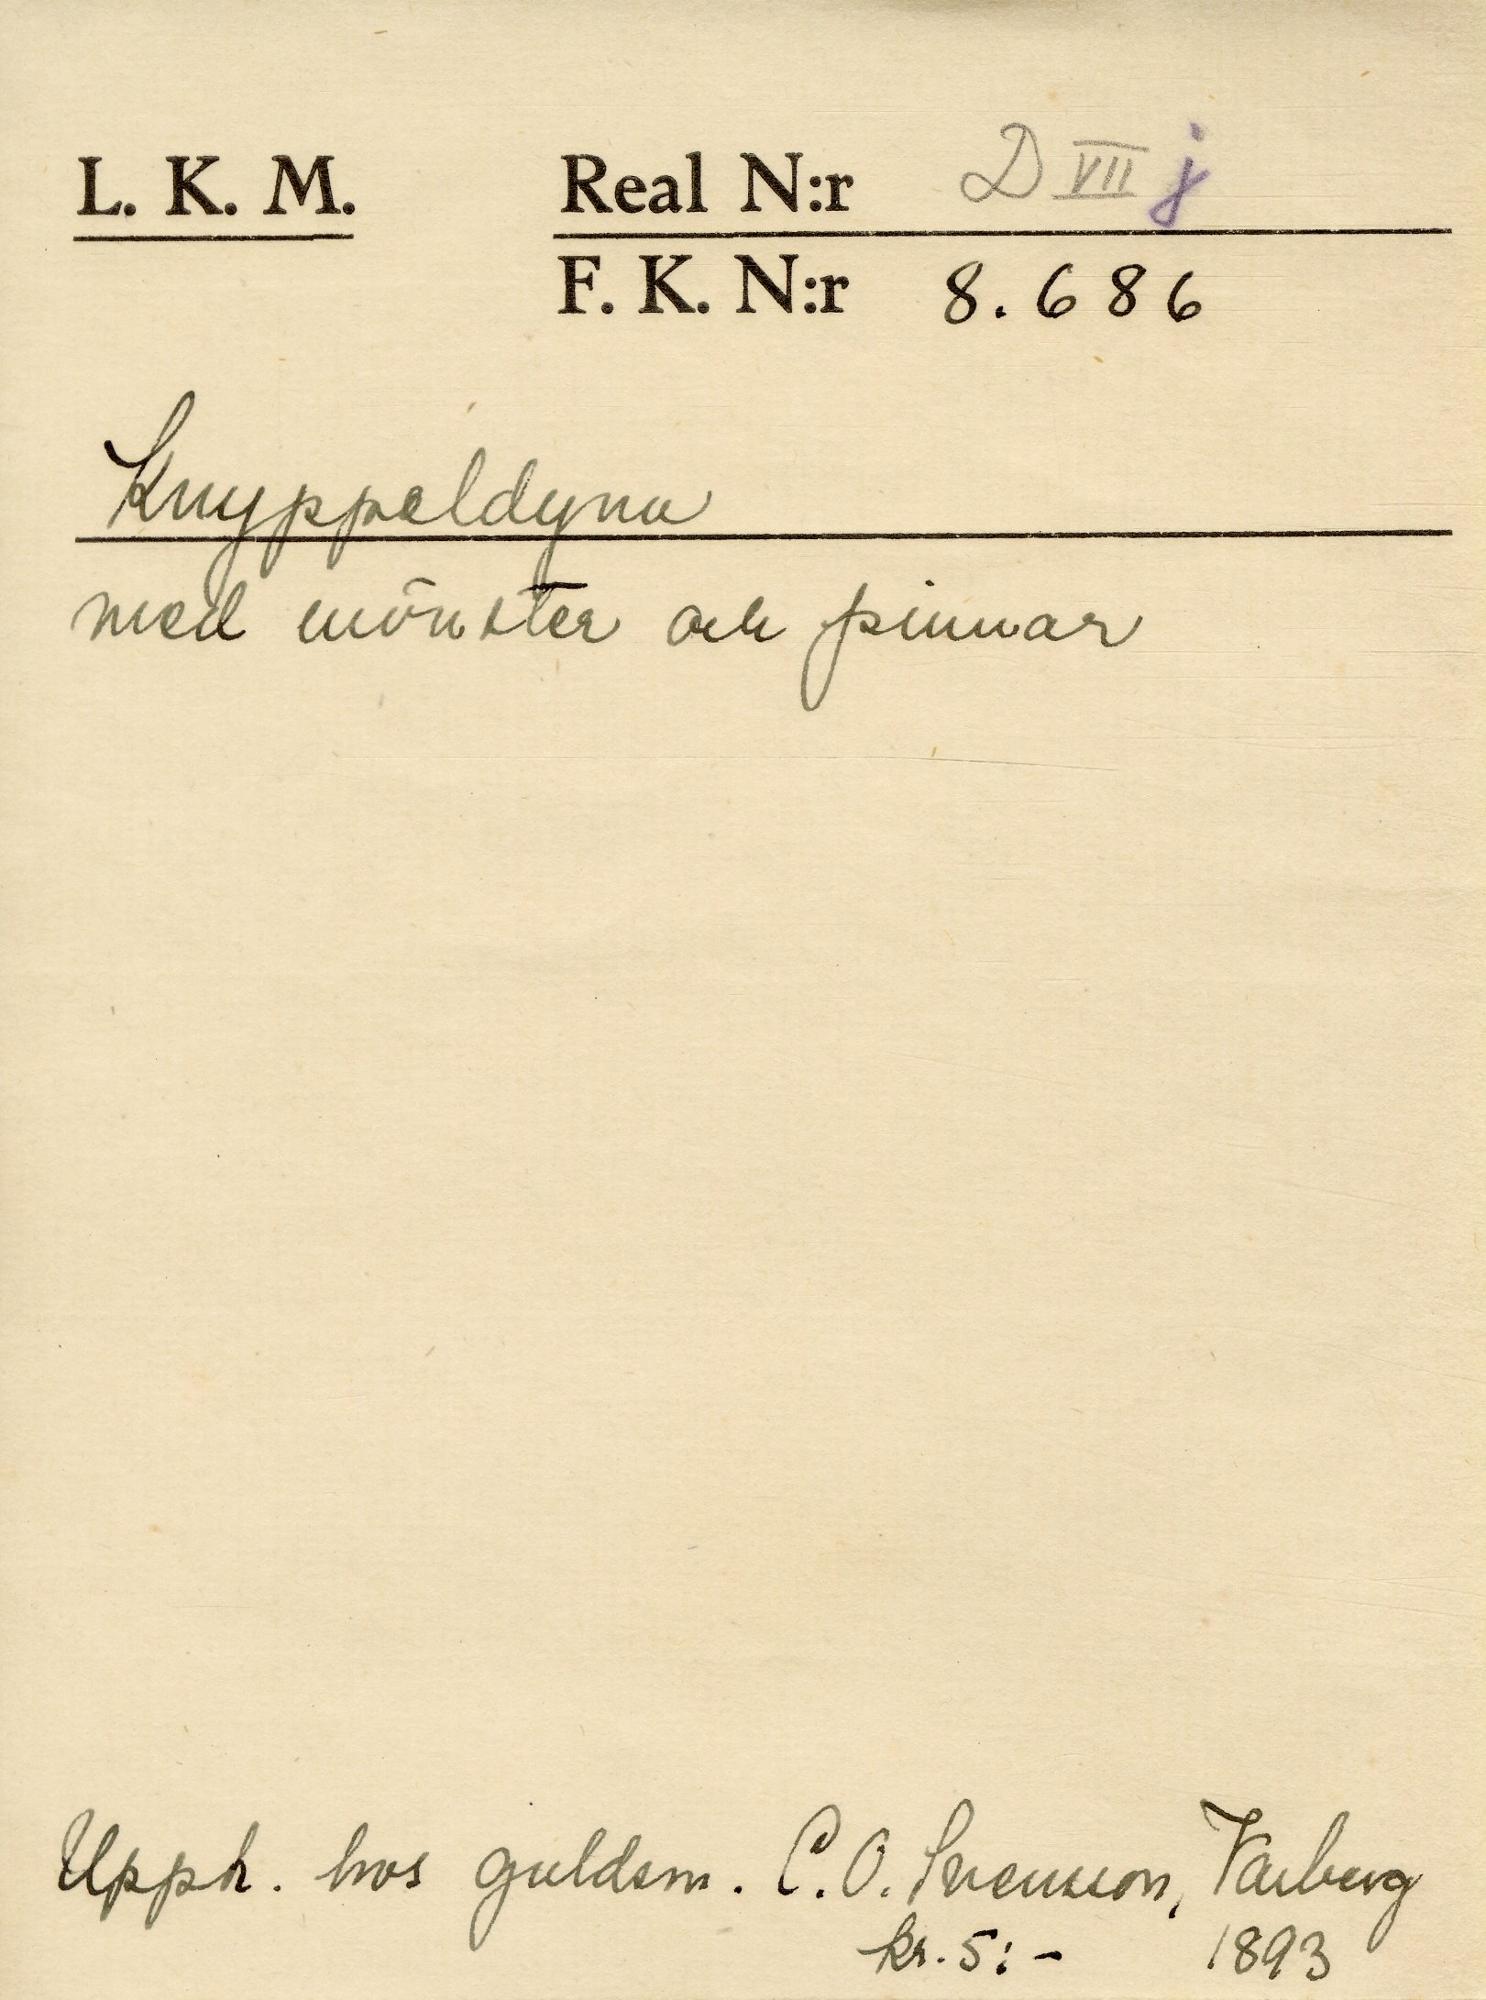 L. K. M.
Real N:r D VII j
F. K. N:r 8.686
Knyppeldyna
med mönster och pinnar
Upph. hos guldsm. C.O. Svensson, Varberg
kr. 5:- 1893